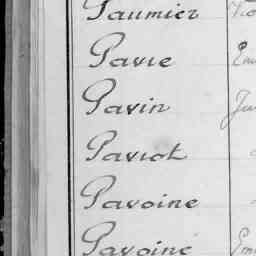 Paumier
Pavie
Pavin
Paviot
Pavoine
Pavoine